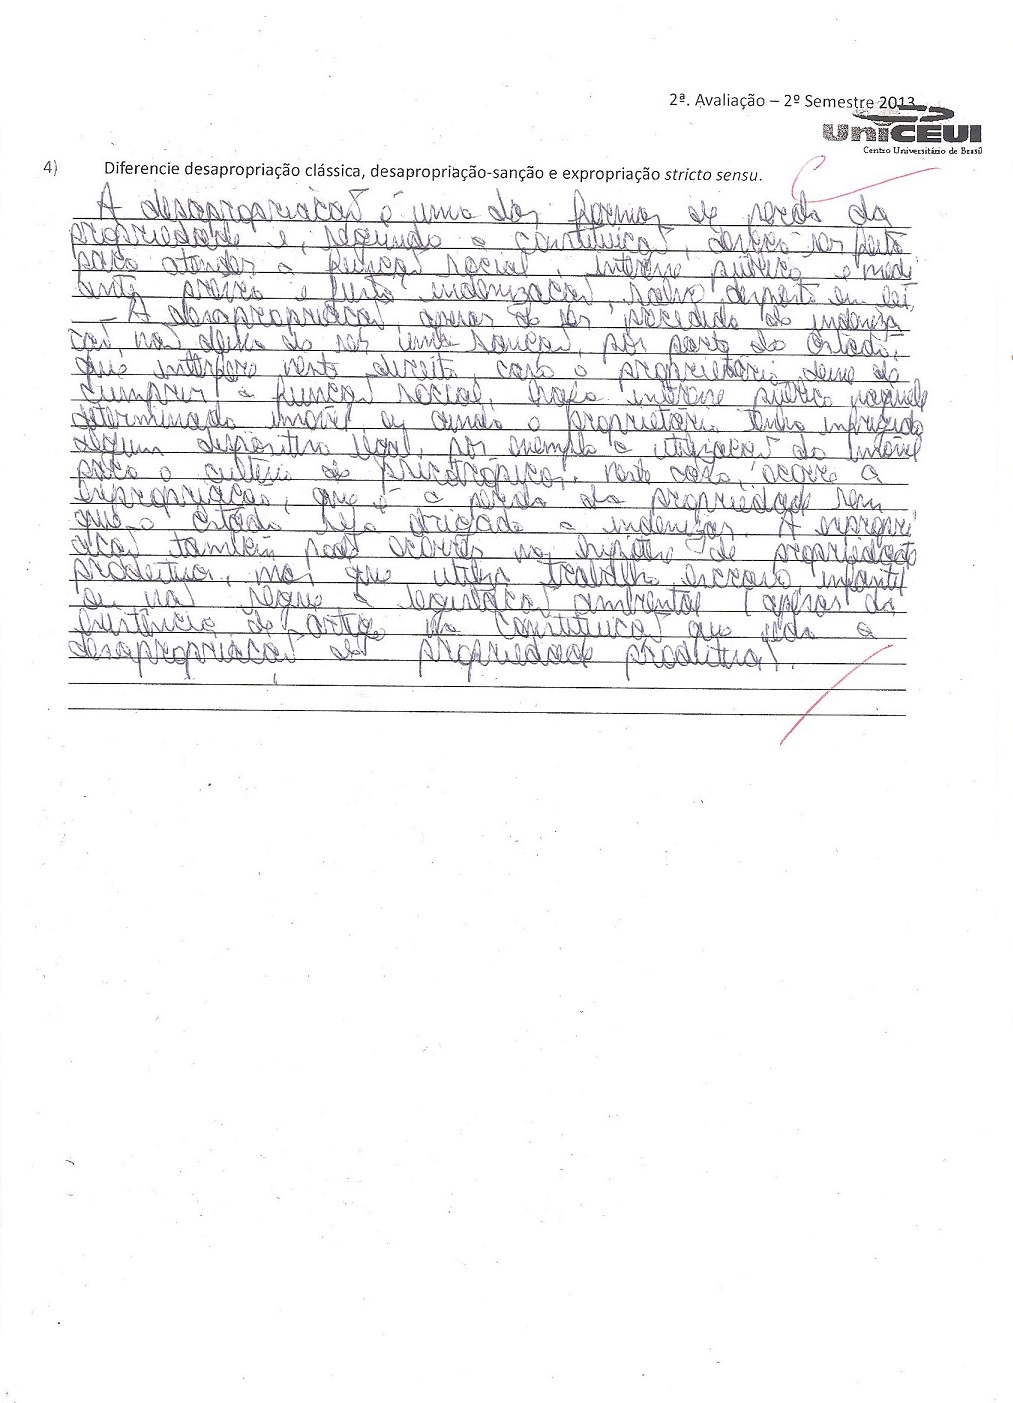 2ª. Avaliação – 2º Semestre 2013
UniCEUB
Centro Universitário de Brasíl
4) Diferencie desapropriação clássica, desapropriação-sanção e expropriação stricto sensu.
A desapropriação é uma das formas de perda da
propriedade e, segundo a constituição, deverá ser feita
para atender a função social, interesse público e medi
ante prévia e justa indenização, salvo disposto em lei.
A desapropriação, apesar de ser precedida de indeniza
ção, não deixa de ser uma sanção, por parte do Estado,
que interfere neste direito, caso o proprietário deixe de
cumprir a função social, haja interesse público naquele
determinado imóvel ou ainda o proprietário tenha infringido
algum dispositivo legal, por exemplo a utilização do imóvel
para o cultivo de psicotrópicos. Neste caso, ocorre a
expropriação, que é a perda da propriedade sem
que o Estado seja obrigado a indenizar. A expropri
ação também pode ocorrer na hipótese de propriedade
produtiva, mas que utiliza trabalho escravo, infantil
ou não segue a legislação ambiental (apesar da
existência de artigo na Constituição que veda a
desapropriação de propriedade produtiva).